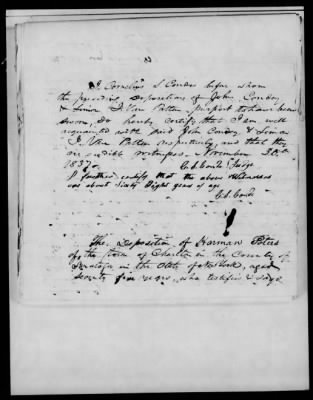 I Cornelius S Conde before whom
the preceding depositions of John Condey
& Simon I. Van Patten, purport to have been
sworn, Do hereby certify that I am well
acquainted with said John Condey & Simon
I. Van Patten respectively, and that they
are credible witnesses. November 30th
1837.
C. S. Conde Judge
I further certify that the above
was about Sixty Eight years of age
C. S. Conde
The Deposition of Harman Peters
of the town of Charlton in the County of
Saratoga in the State of New York, aged
seventy five years, who testifies & says